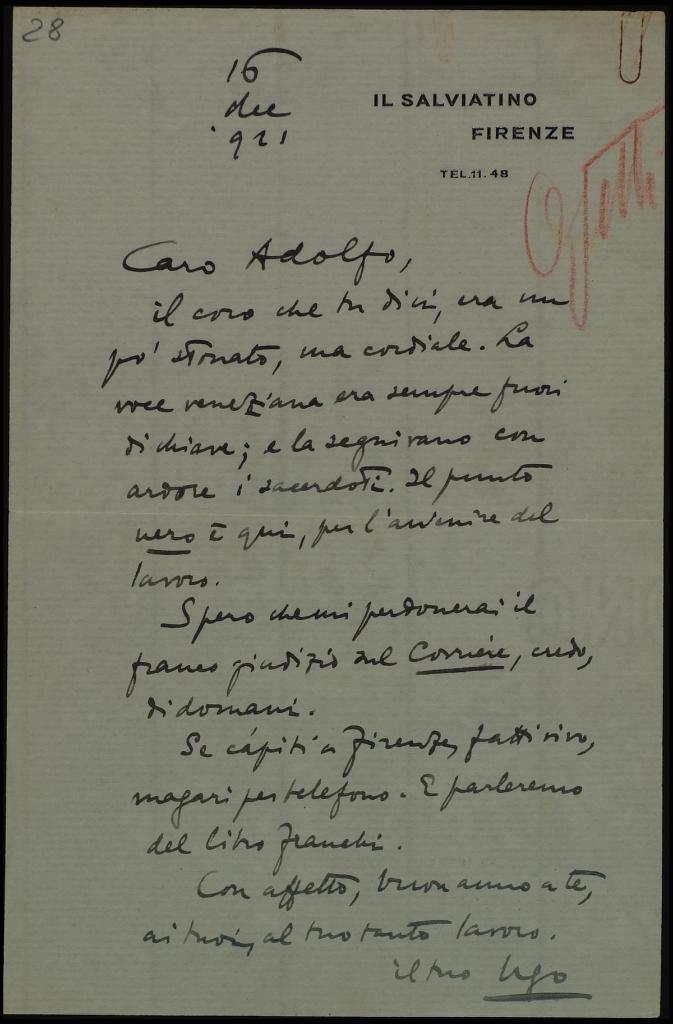 28
16
dec
921
IL SALVIATINO
FIRENZE
TEL. 11. 48
Ojetti
Caro Adolfo,
il coro che tu dici, era un
po' stonato, ma cordiale. La
voce veneziana era sempre fuori
di chiave; e la seguivano con
ardore i sacerdoti. Il punto
nero è qui, per l'avvenire del
lavoro.
Spero che mi perdonerai il
franco giudizio sul Corriere, credo,
di domani.
Se càpiti a Firenze, fatti vivo,
magari per telefono. E parleremo
del libro Franchi.
Con affetto, buon anno a te,
ai tuoi, al tuo tanto lavoro.
il tuo Ugo